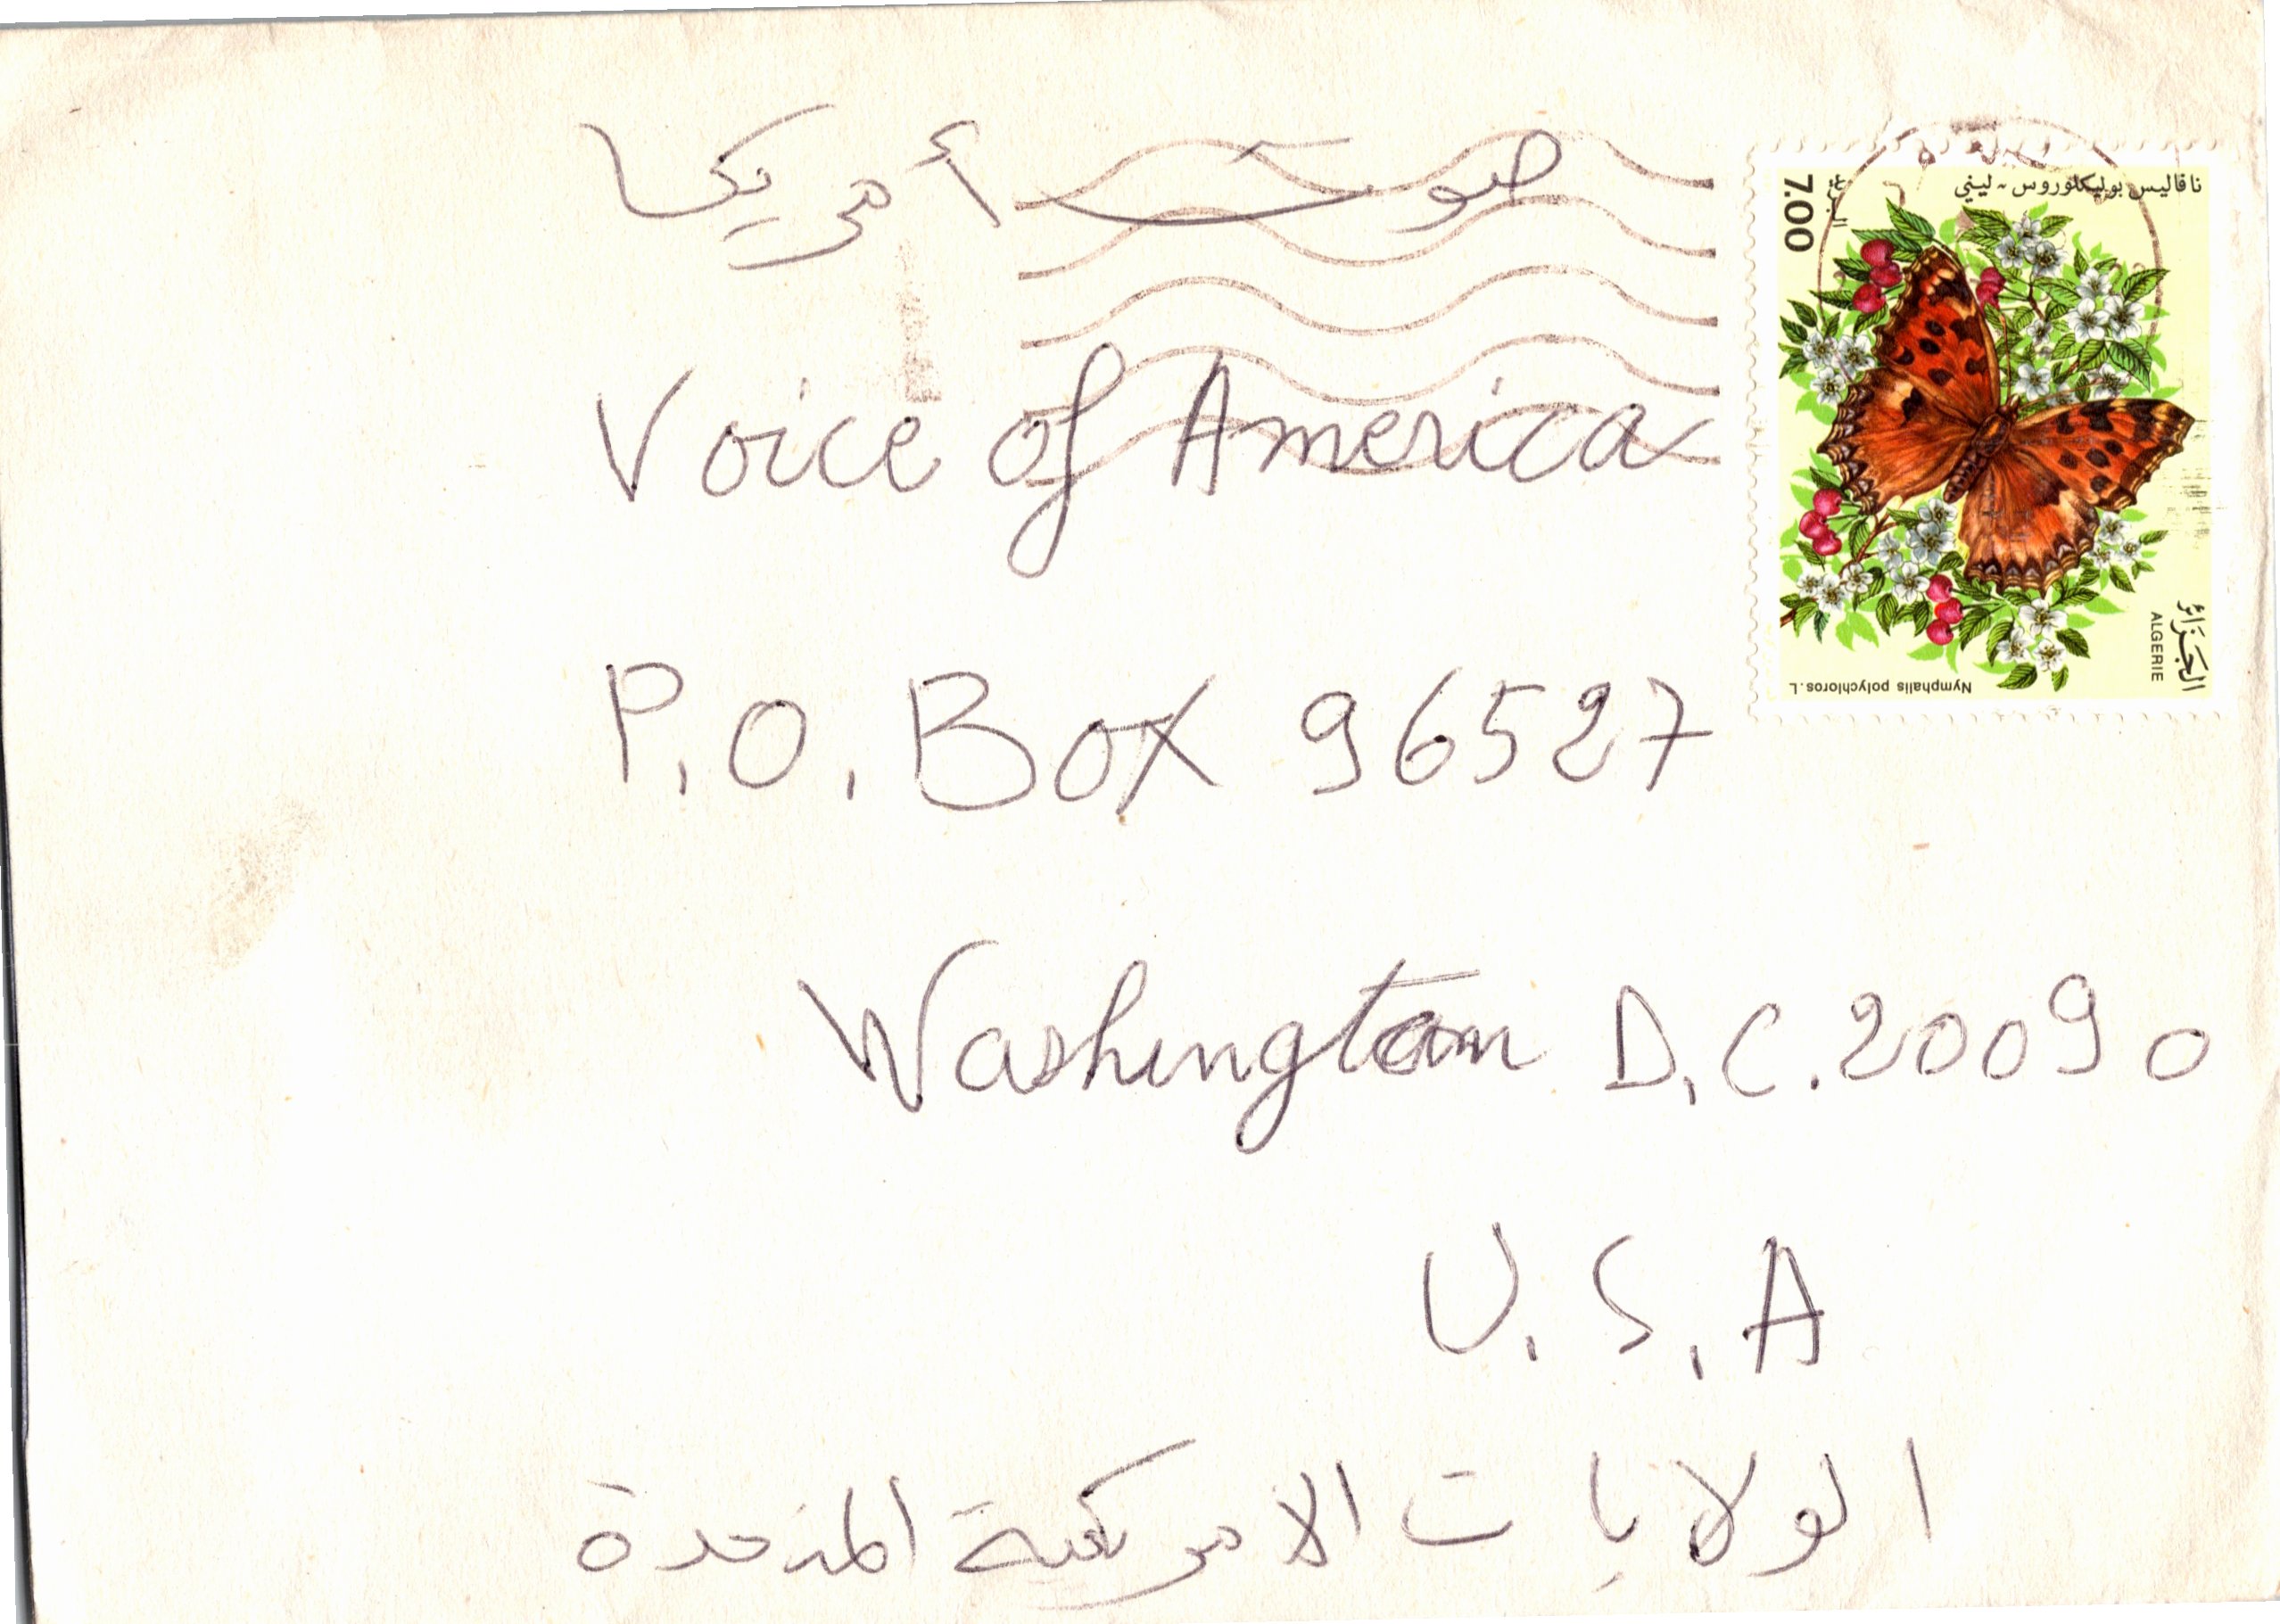 صوت أمريكا
Voice of America
P.O. Box 96527
Washington D.C. 20090
U.S.A
الولايات الامريكية المتحدة
7.00
نافاليس بوليكلوروس - ليني
الجزائر
ALGERIE
Nymphalis polychloros. L